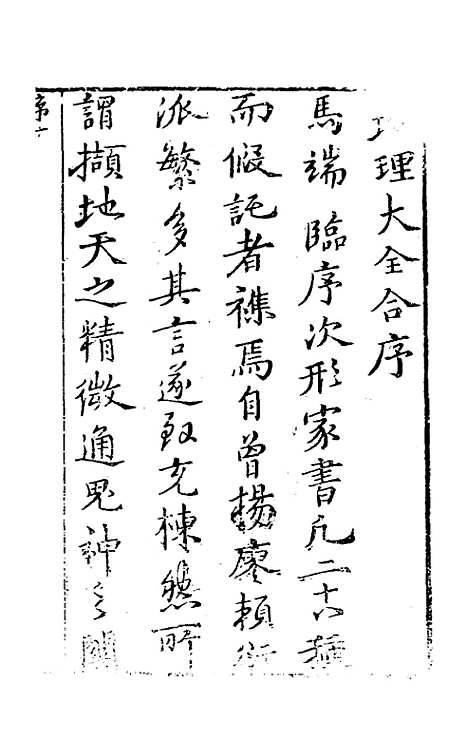 理大全合序
馬端臨序次形家書凡二十八種
而假託者襍焉自曾楊廖賴衍
派繁多其言遂致充棟然所
謂擷地天之精微通鬼神之關
序